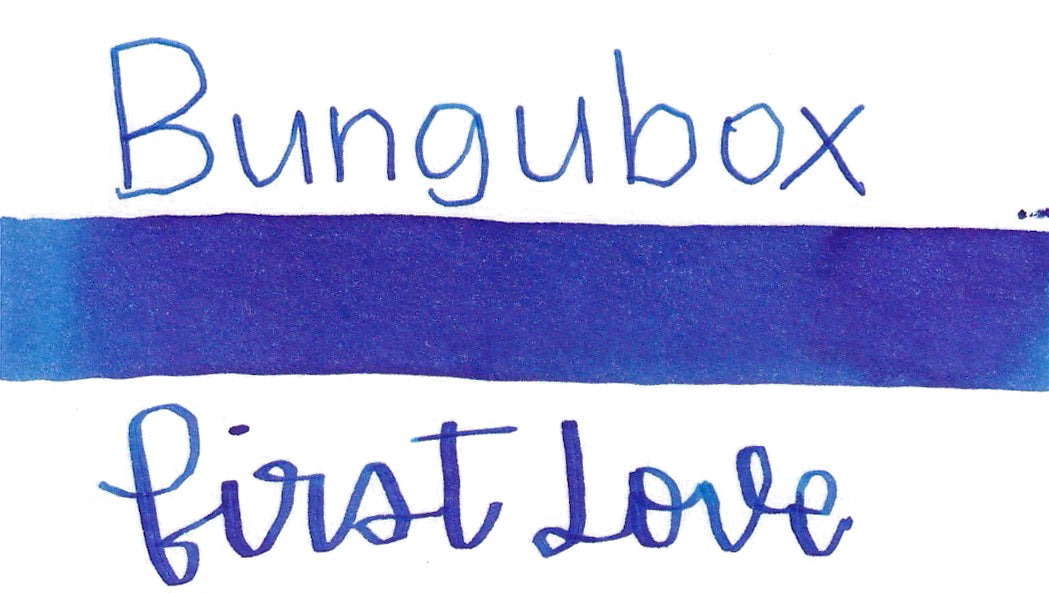 Bungubox
first Love